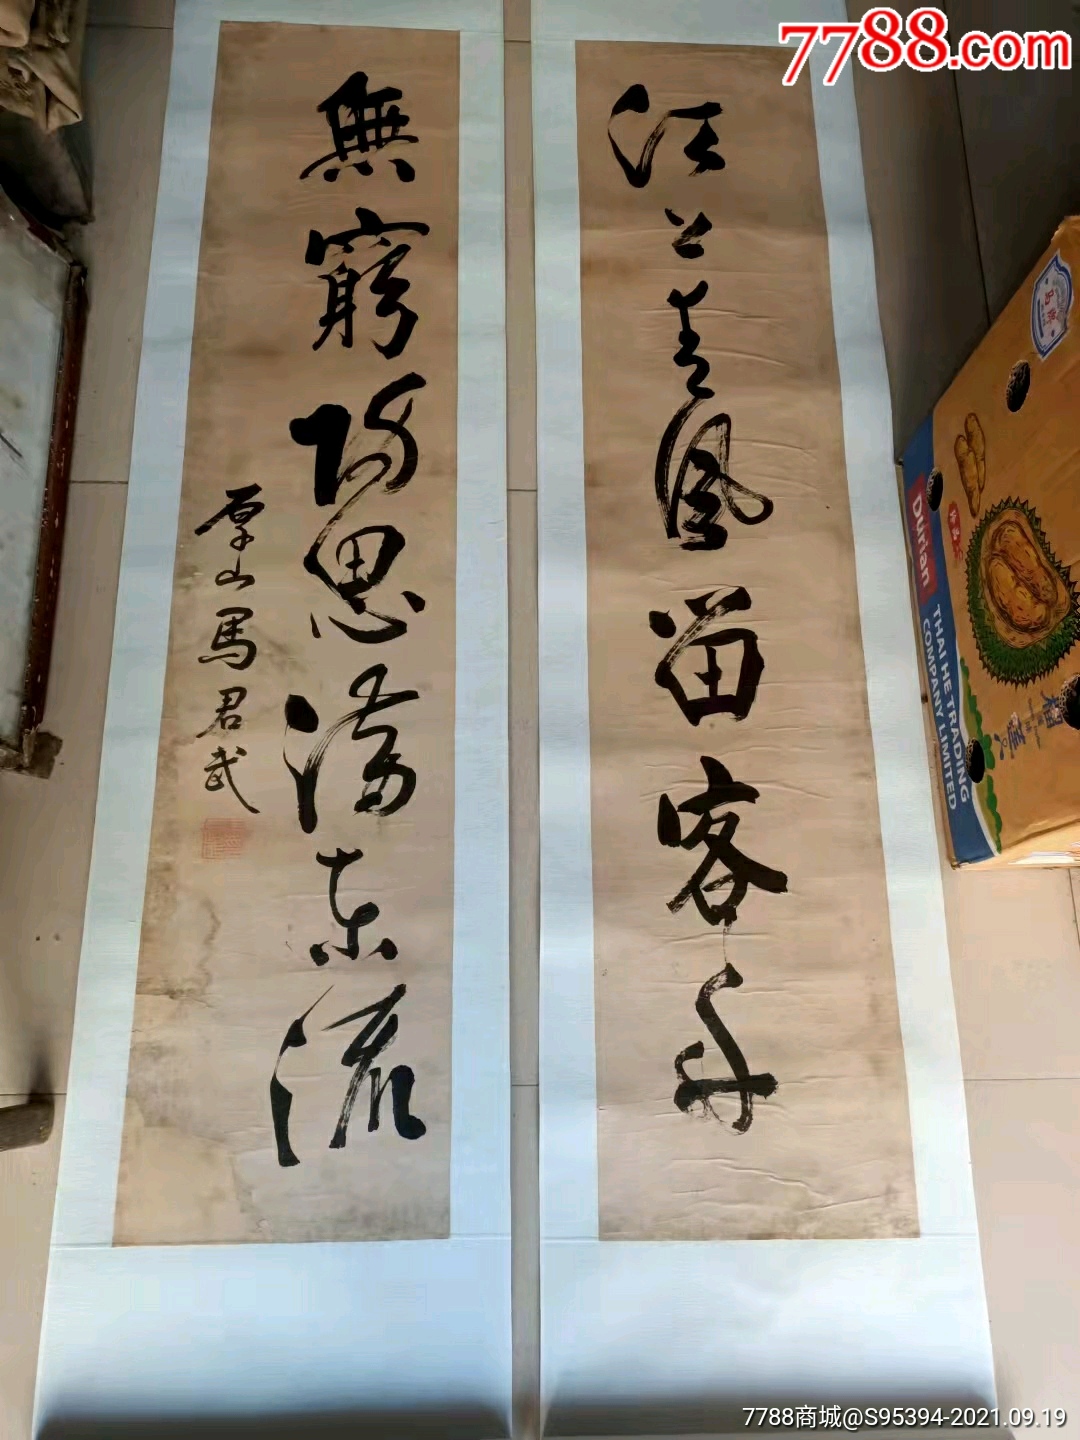 7788.com
江上春風留客舟
無窮歸思滿東流
厚山馬君武
Durian
THAI HE TRADING
COMPANY LIMITED
7788商城@S95394-2021.09.19